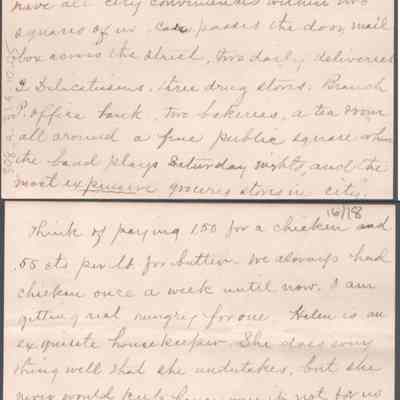 have all city conveniences within two
squares of us. Car passes the door, mail
box across the street, two daily deliveries
3 Delicatessens, three drug stores, Branch
P. office bank, two bakeries, a tea room
all around a fine public square where
the band plays Saturday nights, and the
most expensive grocery store in city.
16/18
Think of paying 1.50 for a chicken and
.55 cts per lb. for butter. We always had
chicken once a week until now. I am
getting real hungry for one. Helen is an
exquisite housekeeper. She does every
thing well that she undertakes, but she
never would keep house were it not for us